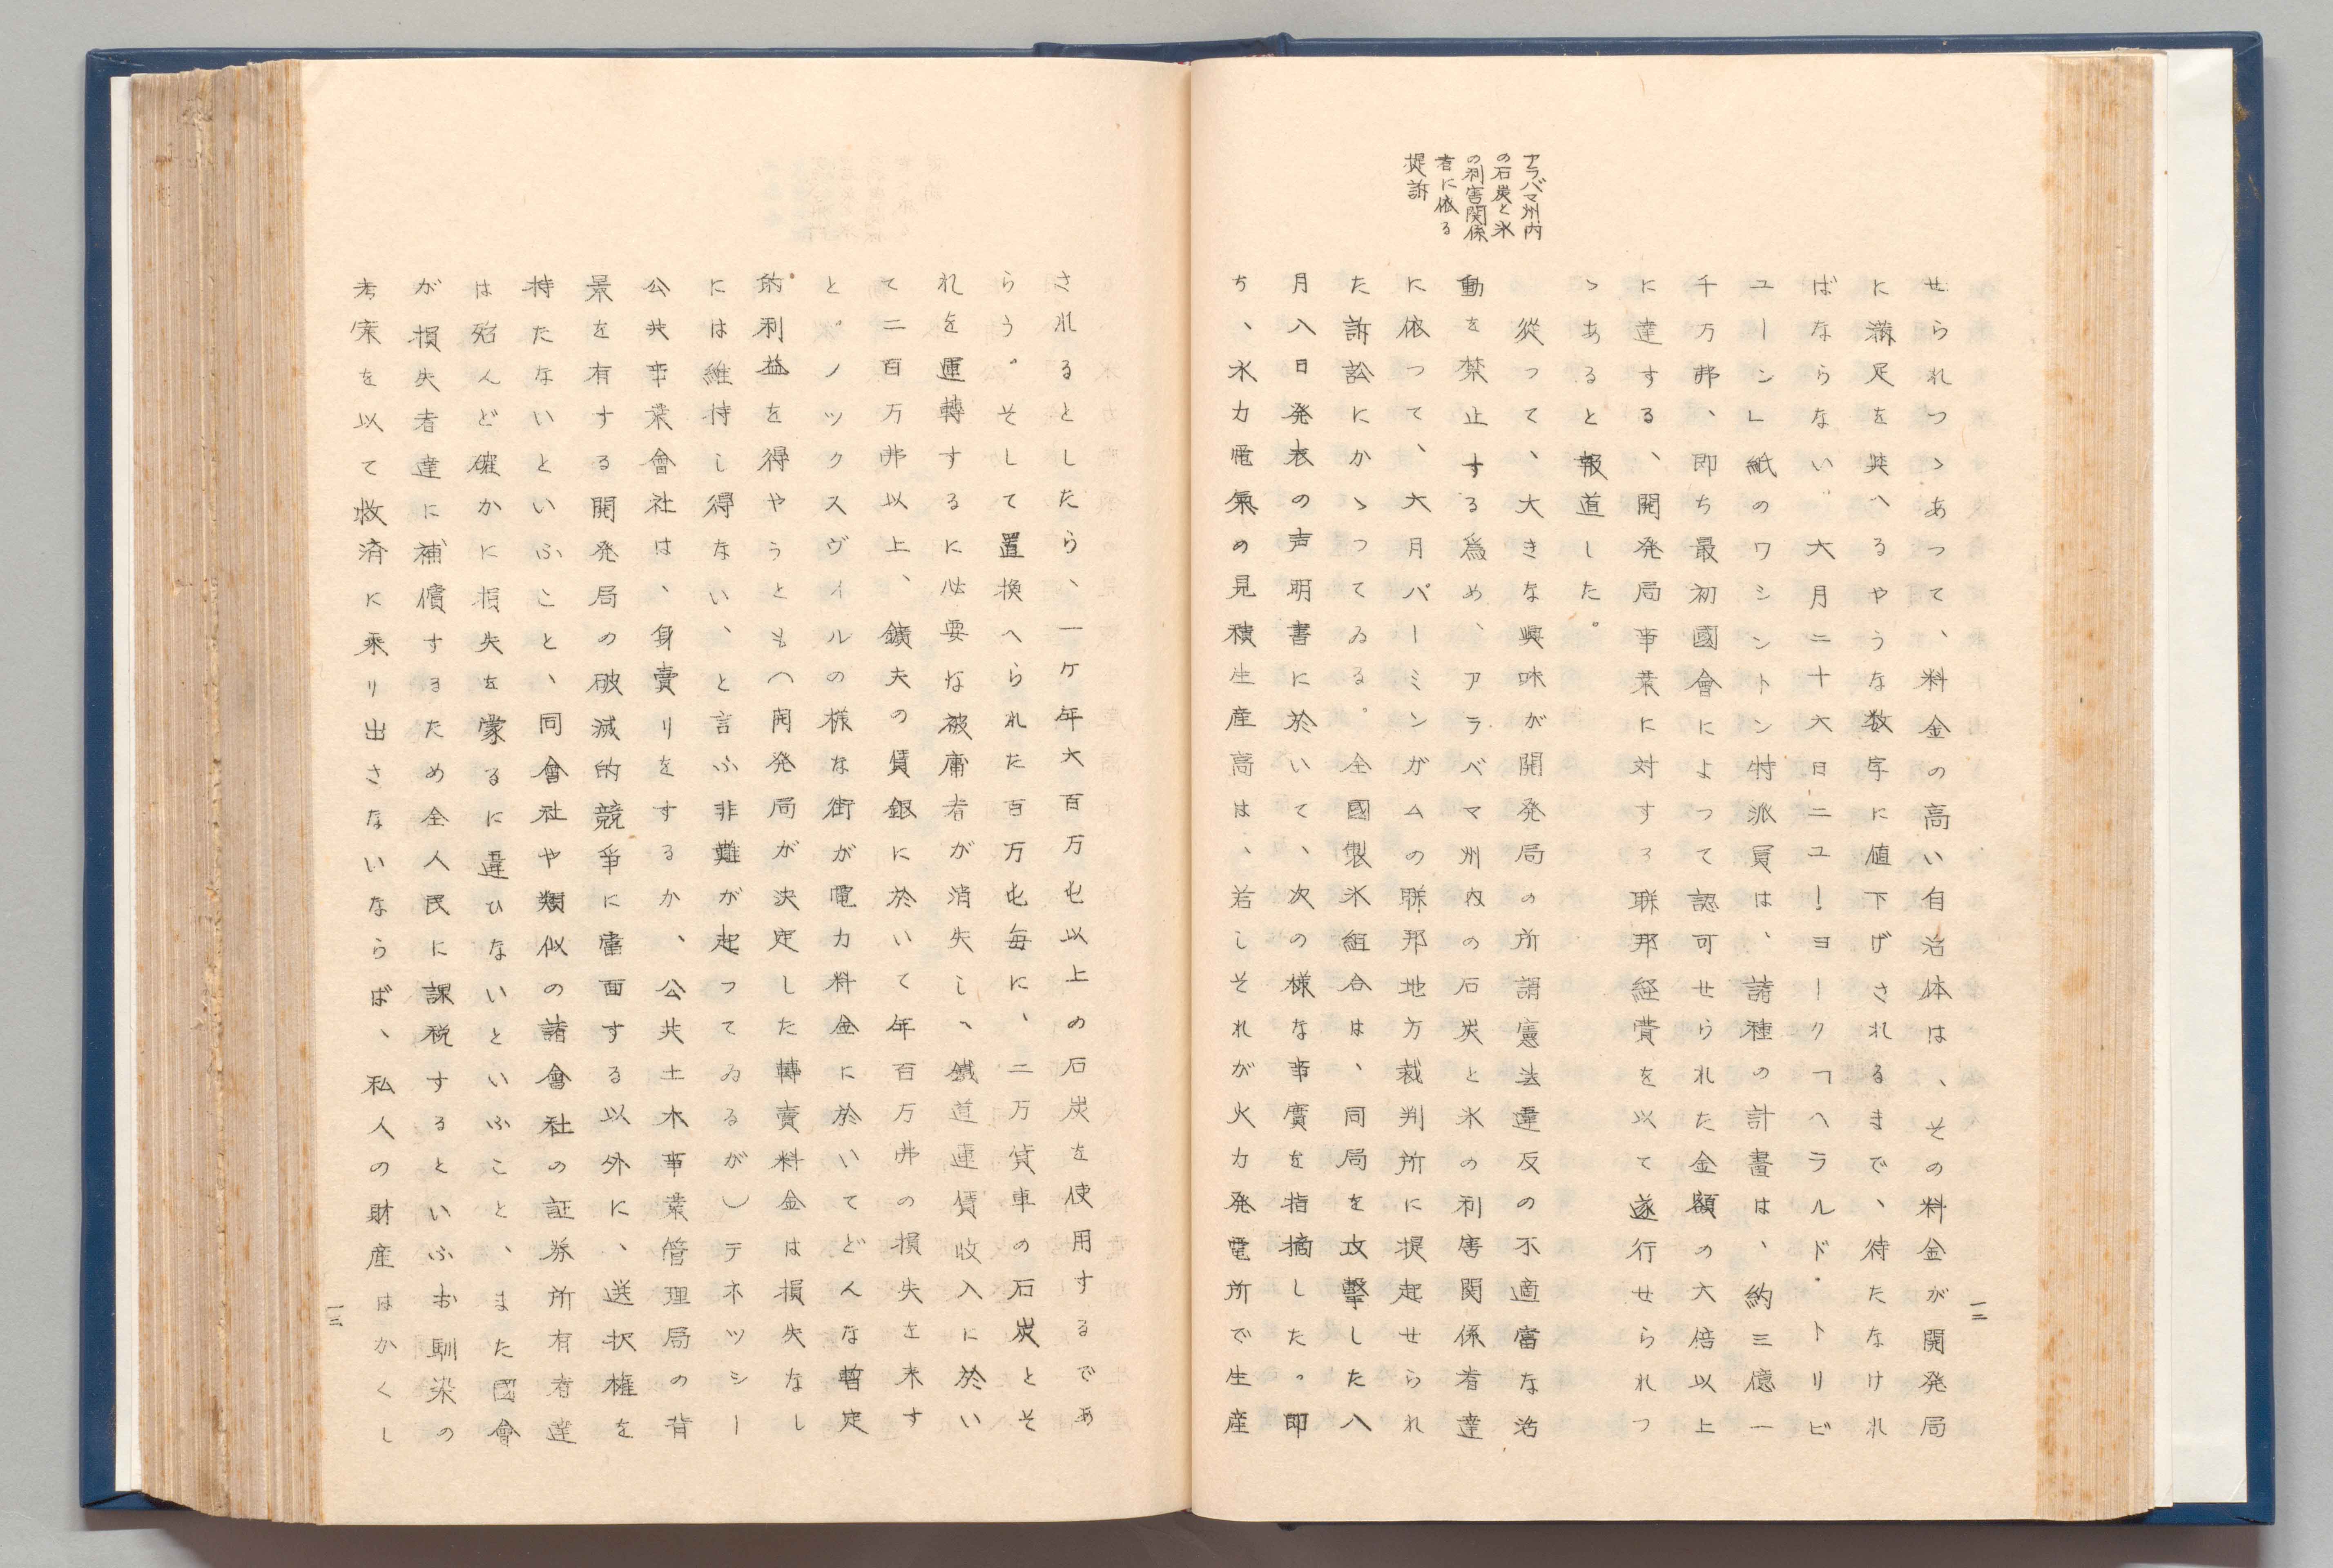 アラバマ州内
の石炭と氷
の利害関係
者に依る
提訴
せられつゝあつて、料金の高い自治体は、その料金が開発局
に満足を與へるやうな数字に値下げされるまで、待たなけれ
ばならない。六月二十六日ニユーヨーク「ヘラルド・トリビ
ユーン」紙のワシントン特派員は、諸種の計畫は、約三億一
千万弗、即ち最初國會によつて認可せられた金額の六倍以上
に達する、開発局事業に対する聯邦経費を以て遂行せられつ
ゝあると報道した。
從つて、大きな興味が開発局の所謂憲法違反の不適當な活
動を禁止する爲め、アラバマ州内の石炭と氷の利害関係者達
に依つて、六月バーミンガムの聯邦地方裁判所に提起せられ
た訴訟にかゝつてゐる。全國製氷組合は、同局を攻撃した八
月八日発表の声明書に於いて、次の様な事實を指摘した。即
ち、水力電氣の見積生産高は、若しそれが火力発電所で生産
一二
されるとしたら、一ケ年六百万屯以上の石炭を使用するであ
らう。そして置換へられた百万屯毎に、二万貨車の石炭とそ
れを運轉するに必要な被庸者が消失し、鐵道運賃收入に於い
て二百万弗以上、鑛夫の賃銀に於いて年百万弗の損失を来す
と。ノツクスヴイルの様な街が電力料金に於いてどんな暫定
的利益を得やうとも（開発局が決定した轉賣料金は損失なし
には維持し得ない、と言ふ非難が起つてゐるが）テネツシー
公共事業會社は、身賣りをするか、公共土木事業管理局の背
景を有する開発局の破滅的競爭に當面する以外に、送択権を
持たないといふこと、同會社や類似の諸會社の証券所有者達
は殆んど確かに損失を蒙るに違ひないといふこと、また國會
が損失者達に補償するため全人民に課税するといふお馴染の
考案を以て救済に乘り出さないならば、私人の財産はかくし
一三